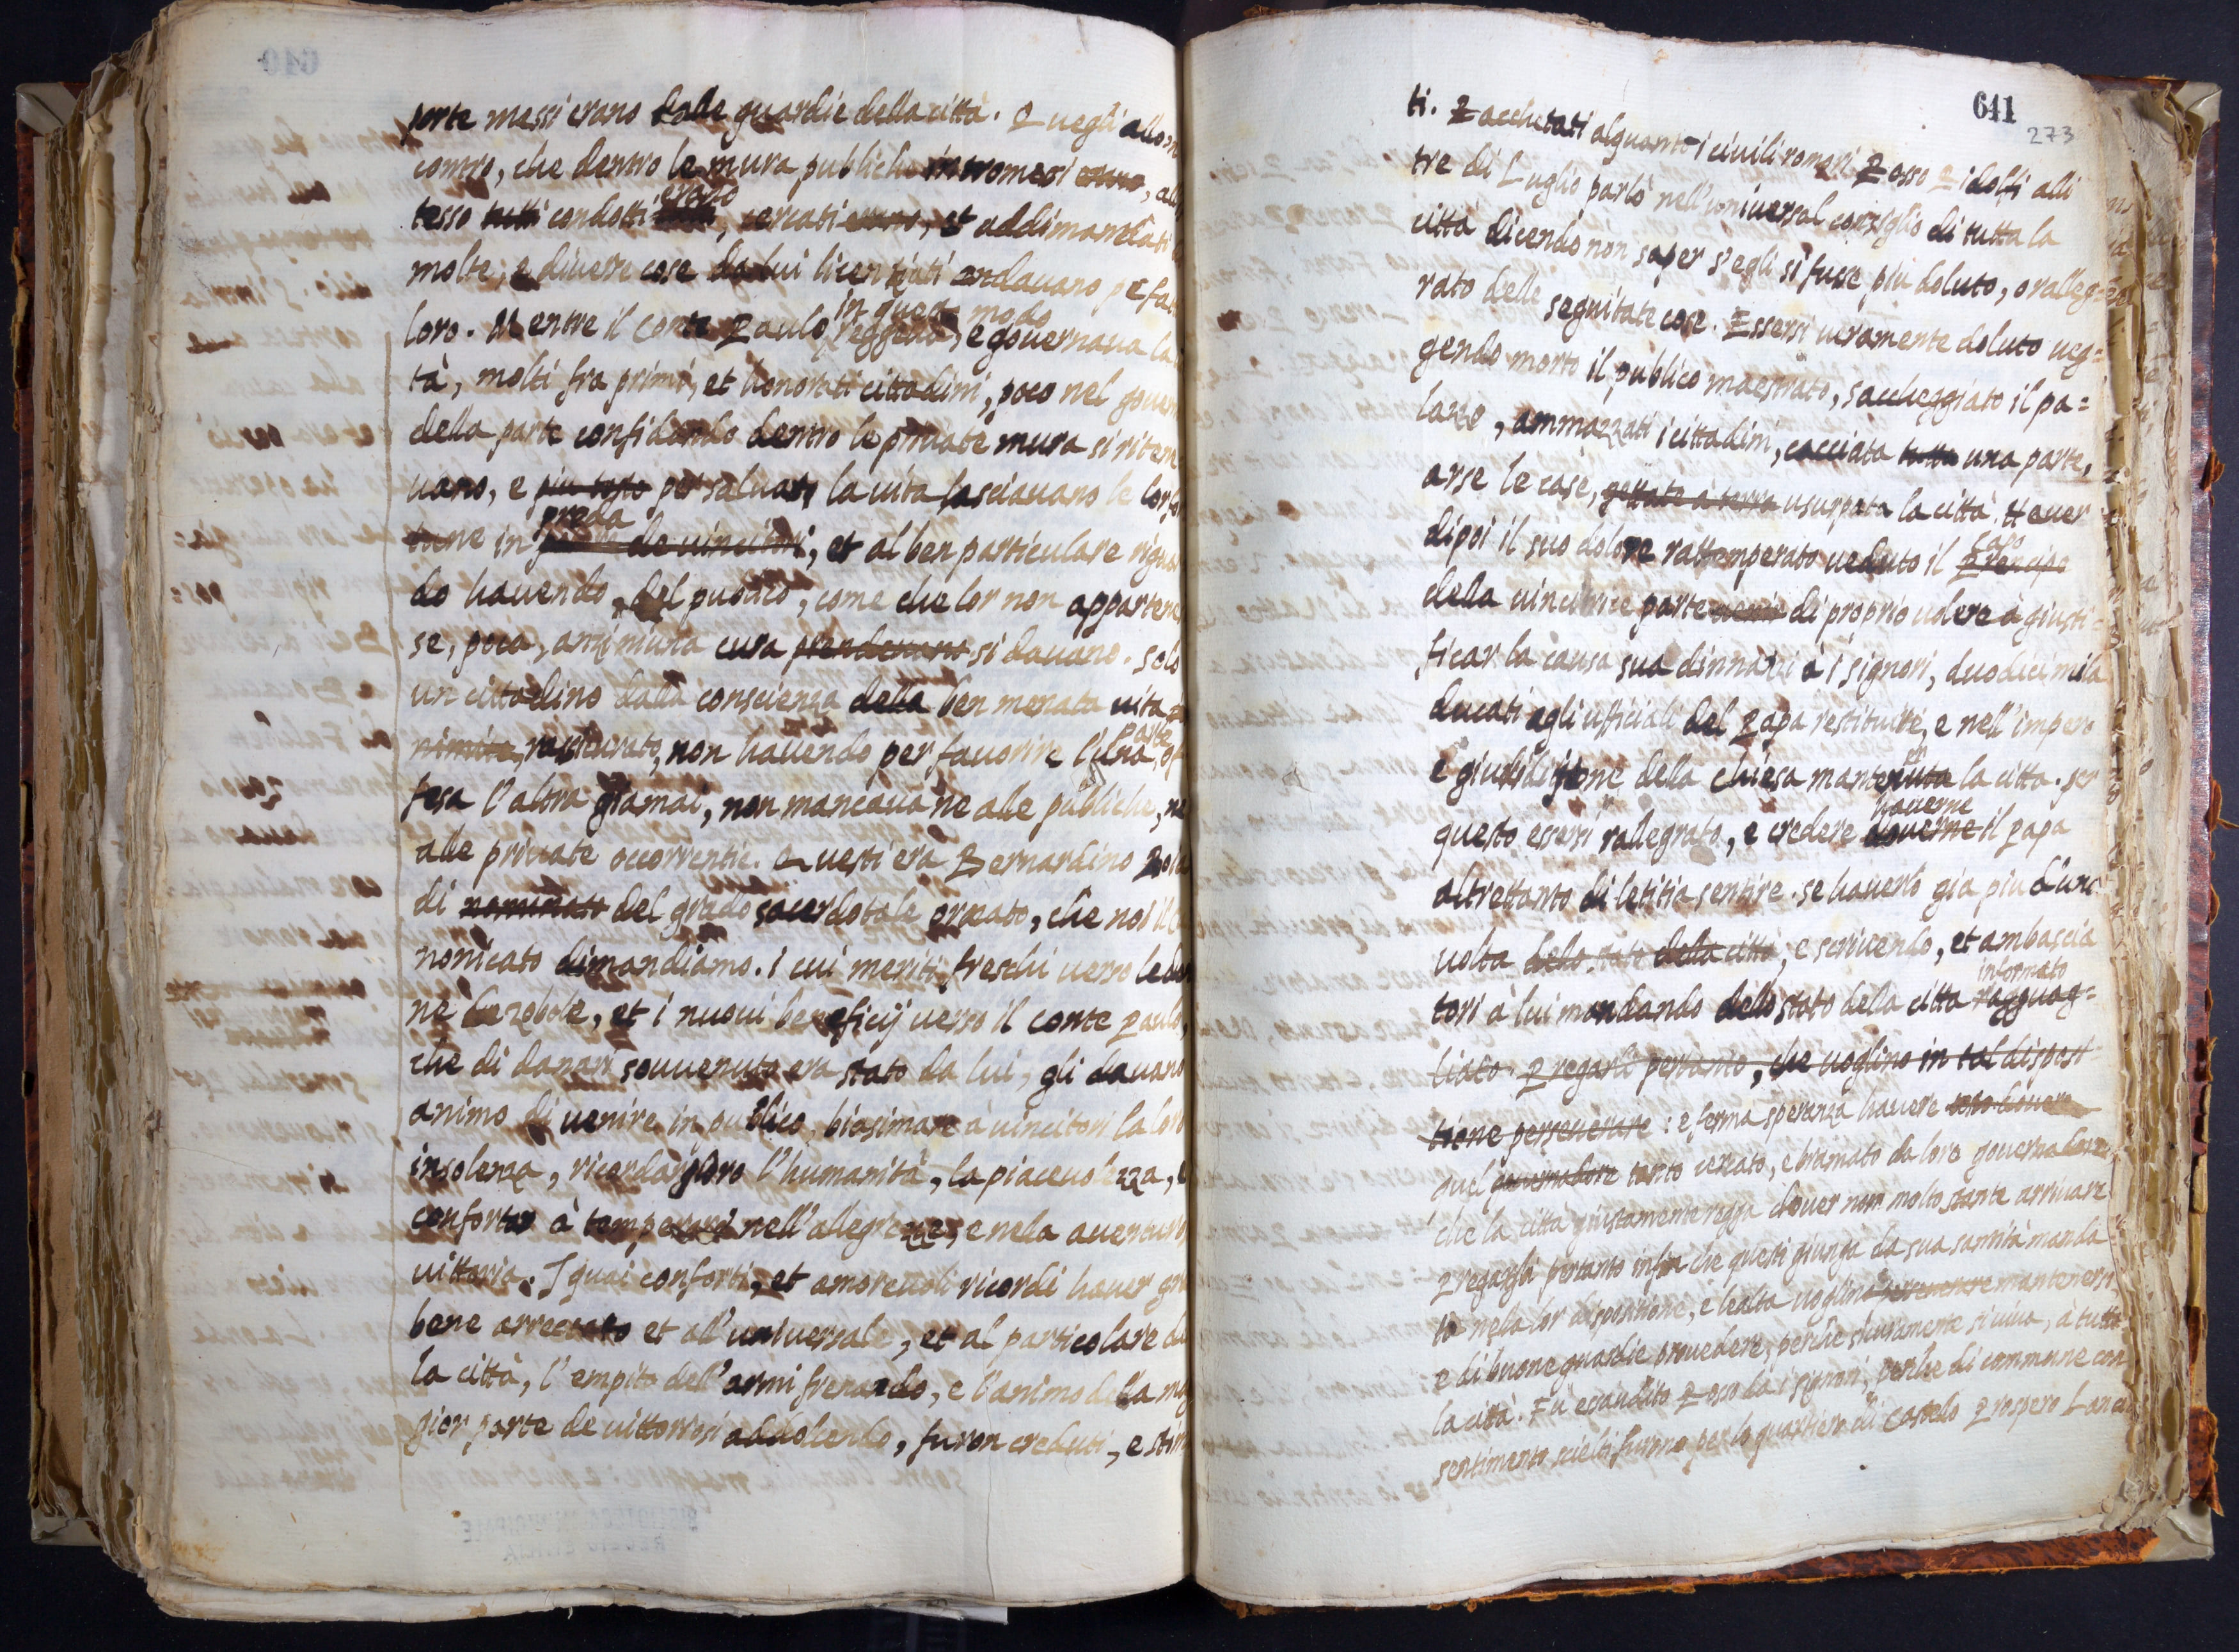 porte messi erano dalle guardie della città. Quegli allon
contro, che dentro le mura publiche intromessi erano,
erano
tesso tutti condotti, cercati erano, et addimandati
molte, e diverse cose da lui licentiati andavano pe fat
in questo modo
loro. Mentre il Conte Paulo reggeva, e governava la
tà, molti fra primi, et honorati cittadini, poco nel gover
della parte confidando dentro le private mura si ritene
uano, e piu tosto per saluar la uita lasciauano le lor for
preda
tune in de uincitori, et al ben particulare riguar
do hauendo, del publico, come che lor non appartenes
se, poca, anzi niuna cura prendeuano si dauano. Solo
un cittadino dalla conscienza della ben menata uita
parte
rassicurato, non hauendo per fauorire l'una, of
fesa l'altra giamai, non mancaua ne alle publiche, ne
alle priuate occorrentie. Questi era Bernardino
di nominato del grado sacerdotale ornato, che noi il Ca
nonicato dimandiamo. I cui meriti freschi uerso le
ne, et i nuoui beneficij uerso il conte Paulo,
che di danari souuenuto era stato da lui, gli dauano
animo di uenire in publico, biasimare à uincitori la loro
insolenza, ricordar loro l'humanità, la piaceuolezza, e
confortar à temperarsi nell'allegrezze, e nela auenturosa
uittoria. I quai conforti, et amoreuoli ricordi hauer gran
bene arrecato et all'uniuersale, et al particolare del
la città, l'empito dell'armi frenando, e l'animo della mag
gior parte de uittoriosi addolcendo, furon creduti, e stim
641
273
ti. E acchetati alquanto i ciuili romori Zoso Ridolfi alli
tre di Luglio parlò nell'uniuersal consiglio di tutta la
città dicendo non saper s'egli si fusse piu doluto, o ralleg=
rato delle seguitate cose. Essersi ueramente doluto ueg=
gendo morto il publico maestrato, saccheggiato il pa=
lazzo, ammazzati i cittadini, cacciata tutta una parte,
arse le case, gettate à terra usurpata la città. Hauer
capo
dipoi il suo dolore rattemperato ueduto il Prencipe
della uincitrice parte di proprio uolere à giusti=
ficar la causa sua dinnanzi à i signori, duodici mila
ducati agli ufficiali del Papa restituire, e nell'impero
e giurisdizione della chiesa mantenuta la citta. per
hauerne
questo essersi rallegrato, e credere douerne il papa
altrettanto di letitia sentire. se hauerlo gia piu d'una
uolta dello stato della città, e scriuendo, et ambascia
informato
tori à lui mandando dello stato della citta ragguag=
liato. Pregarli pertanto, che uoglino in tal disposi
tione perseuerare: e ferma speranza hauere tosto douere
quel gouernadore tanto cercato, e bramato da loro gouernadore
che la città giustamente regga douer non molto stante arriuare
Pregarsli pertanto infin che questi giunga da sua santità manda
to nela lor dispositione, e lealta uoglino perseuerare mantenersi,
e di buone guardie prouedere, perche sicuramente si uiua, à tutta
la città. Fu esaudito Zoso da i signori, perche di commune con
sentimento scielti furono per lo quartiero di Castelo Prospero